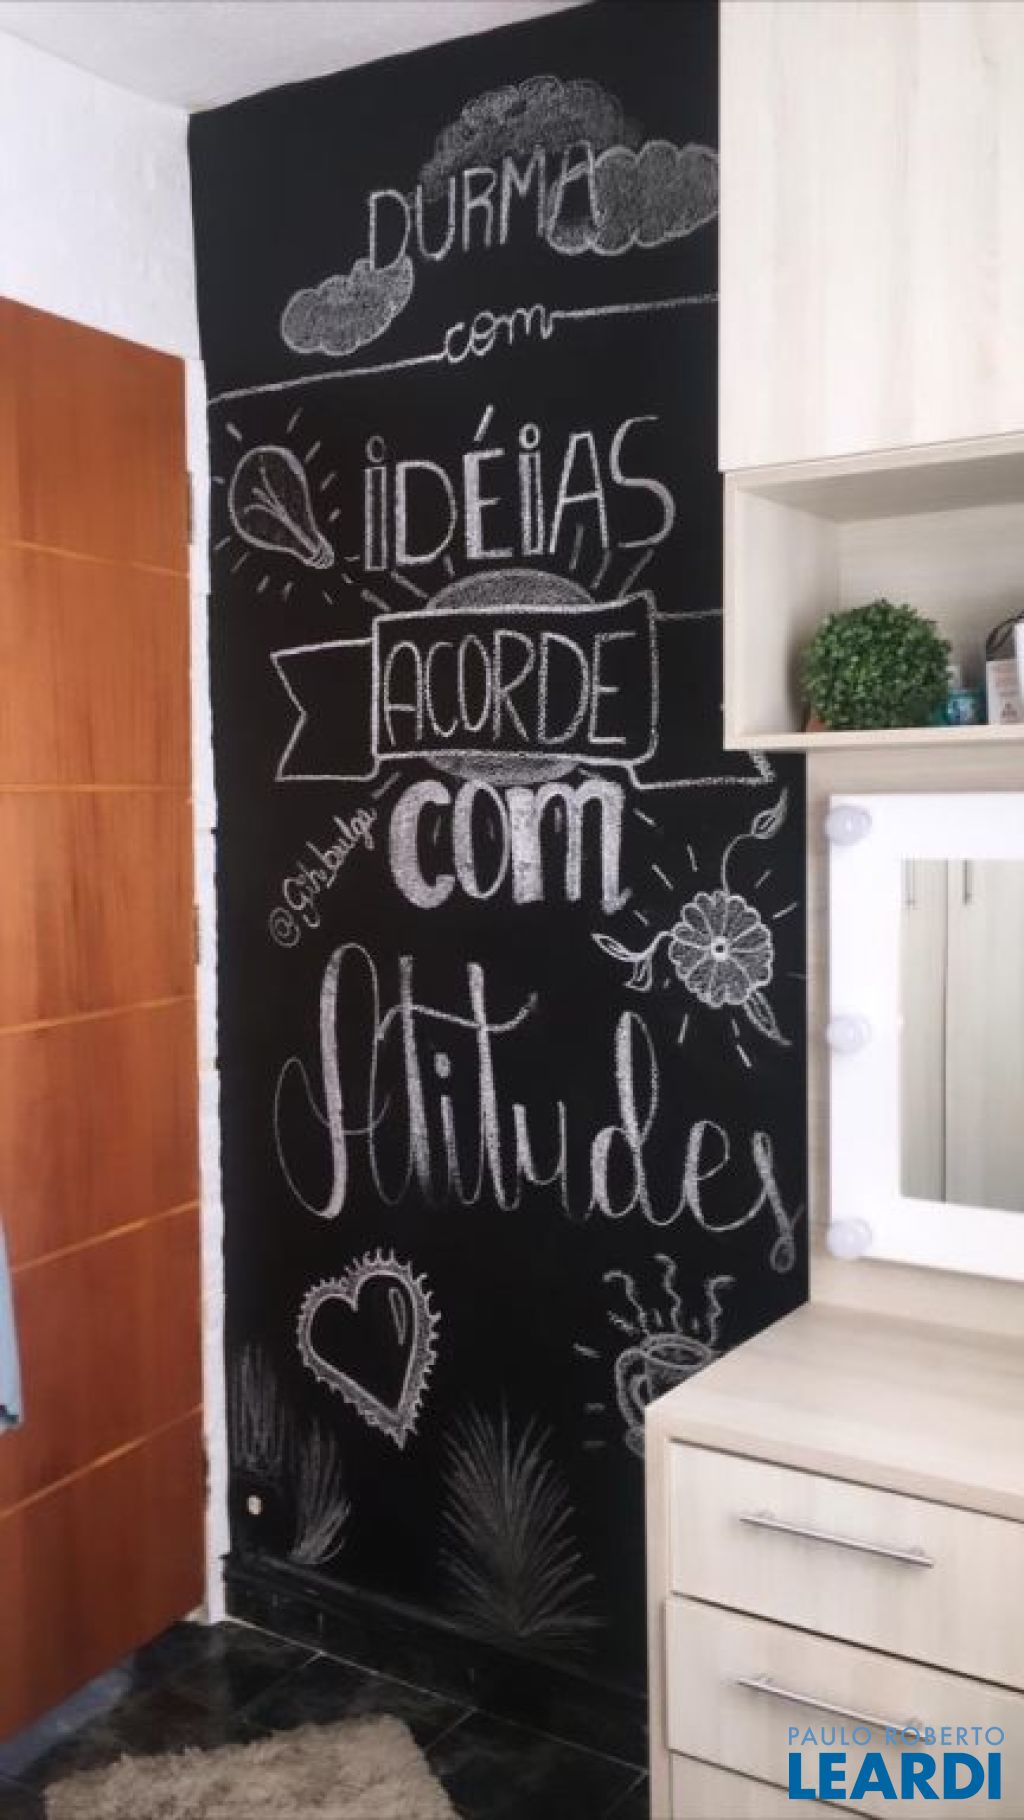 DURMA
com
iDÉiAS
ACORDE
com
@Gihbulga
Atitudes
PAULO ROBERTO
LEARDI